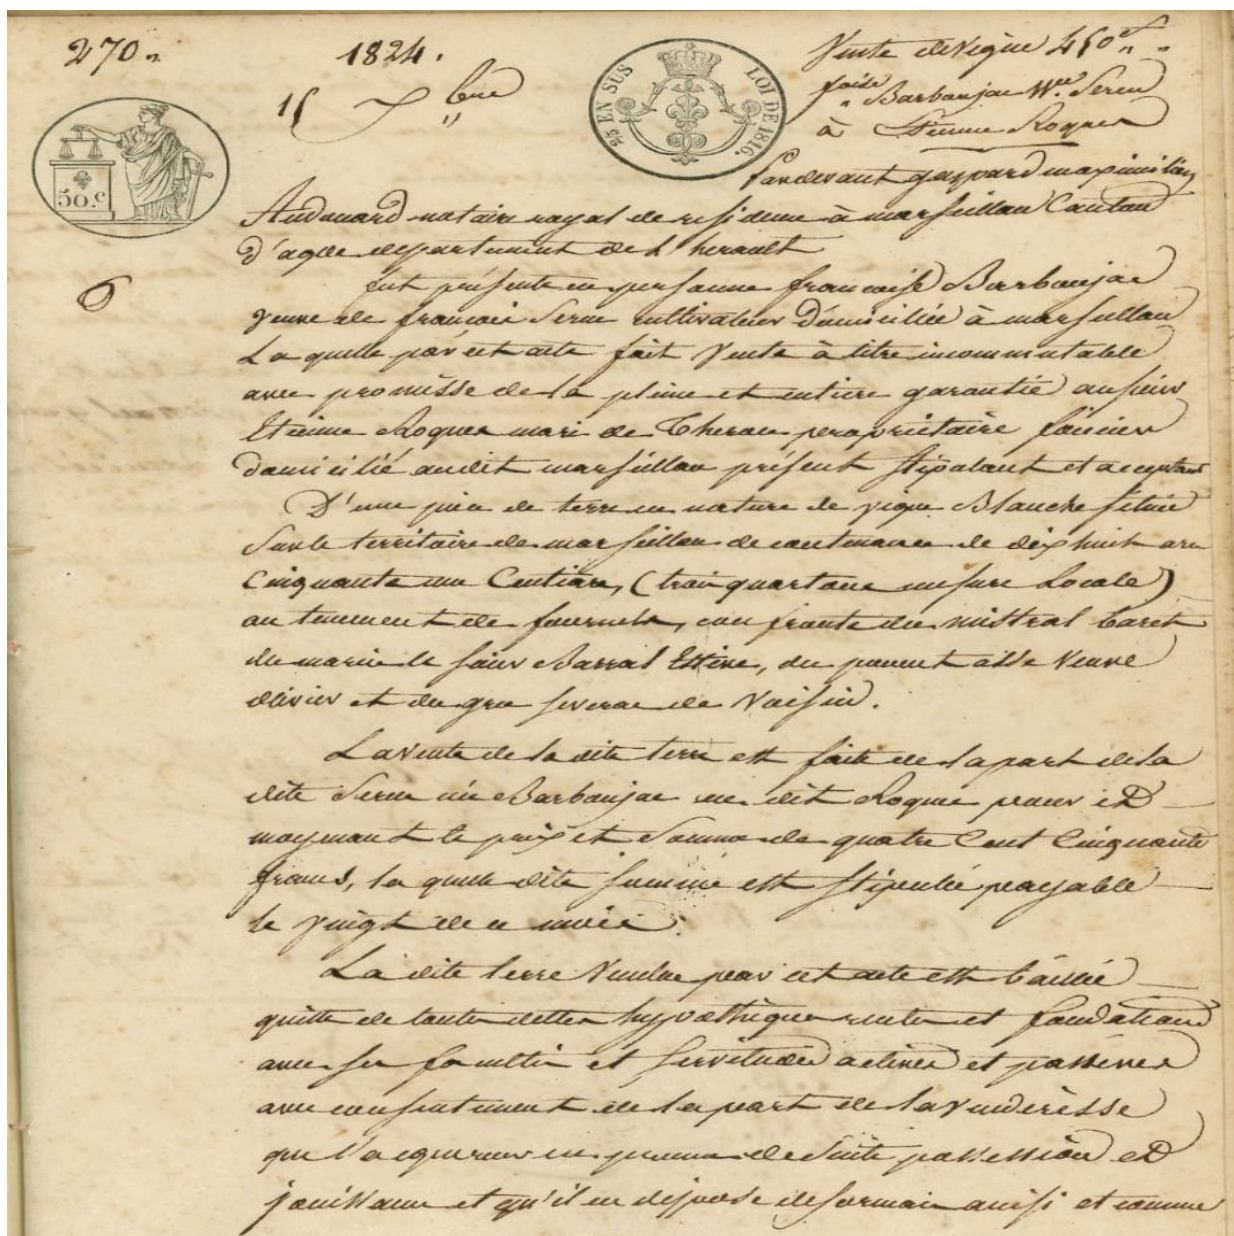 270.
1824.
15 7bre
2/5 EN SUS
LOI DE 1816.
50.c
Vente de vigne 450f
faite
Barbaujac Vve Serin
à Etienne Roques
Pardevant gaspard maximilien
Audouard notaire royal de résidence à marseillan Canton
d'agde departement de L'herault
fut présente en personne francoise Barbaujac
veuve de francois Serin cultivateur domiciliée à marseillan
La quelle par cet acte fait Vente à titre incommutable
avec promisse de la pleine et entiere garantie au sieur
Etienne Roques mari de Therou propriétaire foncier
domicilié audit marseillan présent stipulant et acceptant
D'une piece de terre en nature de vigne Blanche située
Sur le territoire de marseillan de contenance de dixhuit ares
Cinquante un Centiares, (trois quartons mesure Locale)
au tenement de fournels, confronte du mistral Caret
du marin le sieur Barral Estive, du ponent asse Veuve
olivier et du grec severac de Voisin.
La vente de la dite terre est faite de la part de la
dite Serin née Barbaujac au dit Roques pour et
moyenant le prix et Somme de quatre Cent Cinquante
francs, la quelle dite somme est stipulée payable
le vingt de ce mois.
La dite terre Vendue par cet acte est baillée
quitte de toutes dettes hypothèques rentes et fondations
avec ses facultés et servitudes actives et passives
avec consentement de la part de la venderèsse
que l'acquereur en prenne de Suite possession et
jouissance et qu'il en dispose desormais ainsi et comme